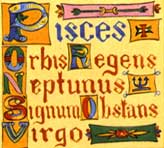 Pisces
Orbis Regens
Neptunus
Signum Obstans
Virgo